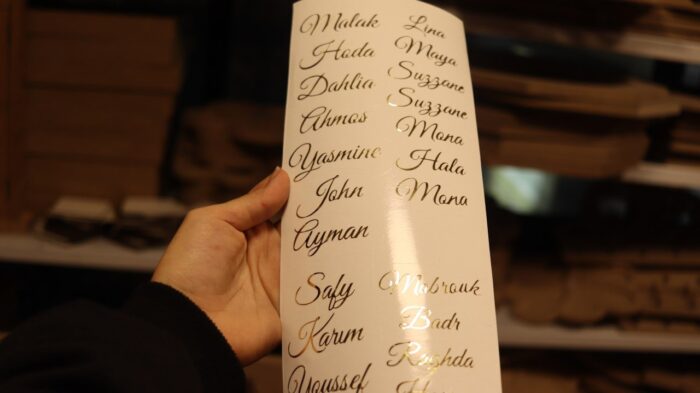 Malak
Hoda
Dahlia
Ahmos
Yasmine
John
Ayman
Safy
Karim
Youssef
Lina
Maya
Suzzane
Suzzane
Mona
Hala
Mona
Mabrouk
Badr
Raghda